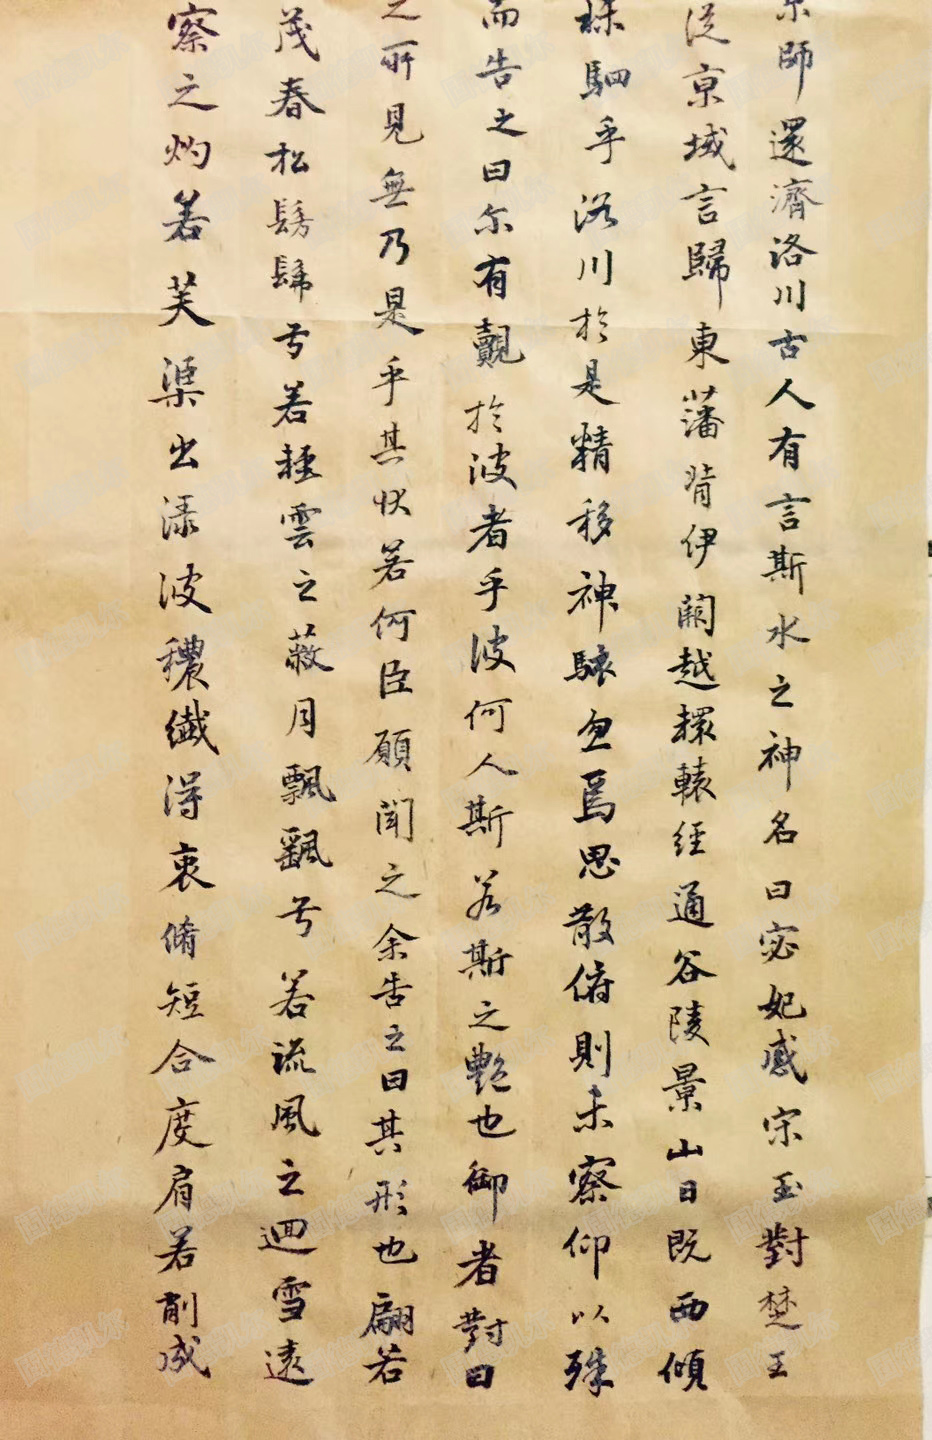 京師還濟洛川古人有言斯水之神名曰宓妃感宋玉對楚王
從京域言歸東藩背伊闕越轘轅經通谷陵景山日既西傾
駟乎洛川於是精移神駭忽焉思散俯則未察仰以殊
而告之曰尔有覿於波者乎波何人斯若斯之艷也御者對曰
之所見無乃是乎其状若何臣願聞之余告之曰其形也翩若
茂春松髣髴兮若輕雲之蔽月飄飖兮若流風之迴雪遠
察之灼若芙渠出渌波穠纖得衷脩短合度肩若削成